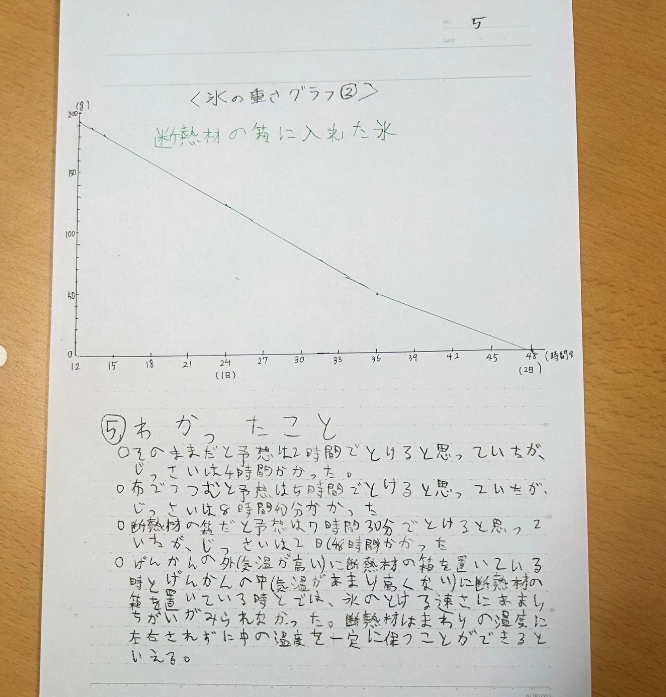 NO. 5
DATE
〈氷の重さグラフ②〉
断熱材の箱に入れた氷
(g)
200
150
100
50
0
12 15 18 21 24 27 30 33 36 39 42 45 48 (時間)
(1日) (2日)
⑤わかったこと
○そのままだと予想は2時間でとけると思っていたが、
じっさいは4時間かかった。
○布でつつむと予想は5時間でとけると思っていたが、
じっさいは8時間40分かかった
○断熱材の箱だと予想は7時間30分でとけると思って
いたが、じっさいは2日(48時間)かかった
○げんかんの外(気温が高い)に断熱材の箱を置いている
時とげんかんの中(気温があまり高くない)に断熱材の
箱を置いている時とでは、氷のとける速さにあまり
ちがいがみられなかった。断熱材はまわりの温度に
左右されずに中の温度を一定に保つことができると
いえる。